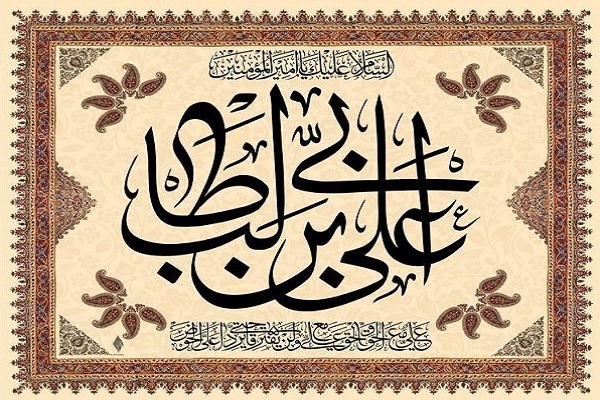 السلام علیك یا امیرالمؤمنین
علی بن ابی طالب ؑ
علی مع الحق و الحق مع علی و لن یفترقا حتی یردا علی الحوض